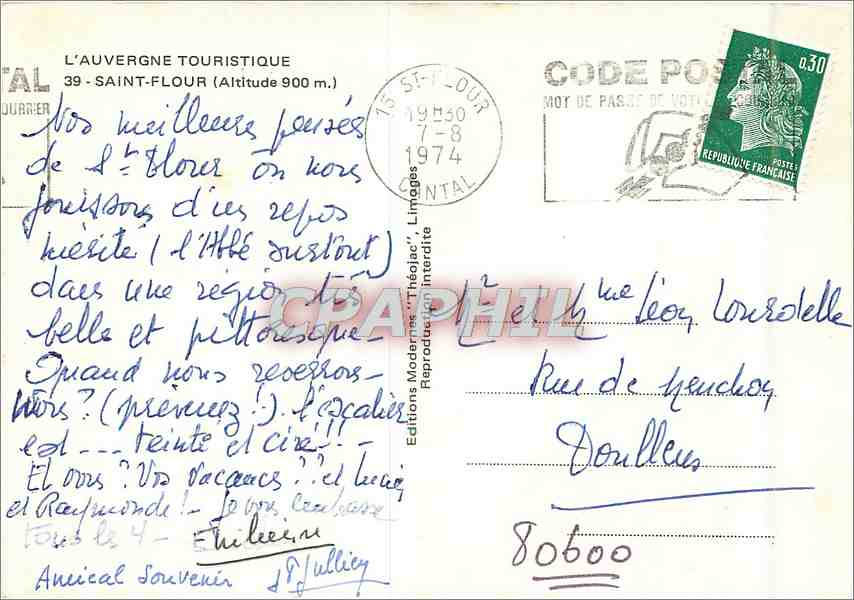 L'AUVERGNE TOURISTIQUE
39 - SAINT-FLOUR (Altitude 900 m.)
TAL
COURRIER
15 ST-FLOUR
19H30
7-8
1974
CANTAL
CODE POSTAL
MOT DE PASSE DE VOTRE COURRIER
0,30
POSTES
REPUBLIQUE FRANÇAISE
Nos meilleures pensées
de St Flour où nous
jouissons d'un repos
mérité (l'Abbé surtout)
dans une région très
belle et pittoresque -
Quand nous reverrons-
nous? (prévenez!). L'escalier
est ... teinté et ciré!! -
Et vous? Vos vacances?? et
et Raymonde! - Je vous embrasse
tous les 4 -
Amical souvenir
Editions Modernes "Théojac", Limoges
Reproduction interdite
CPAPHIL
Mr et Mme Léon Lourdelle
Rue de
Doullens
80600